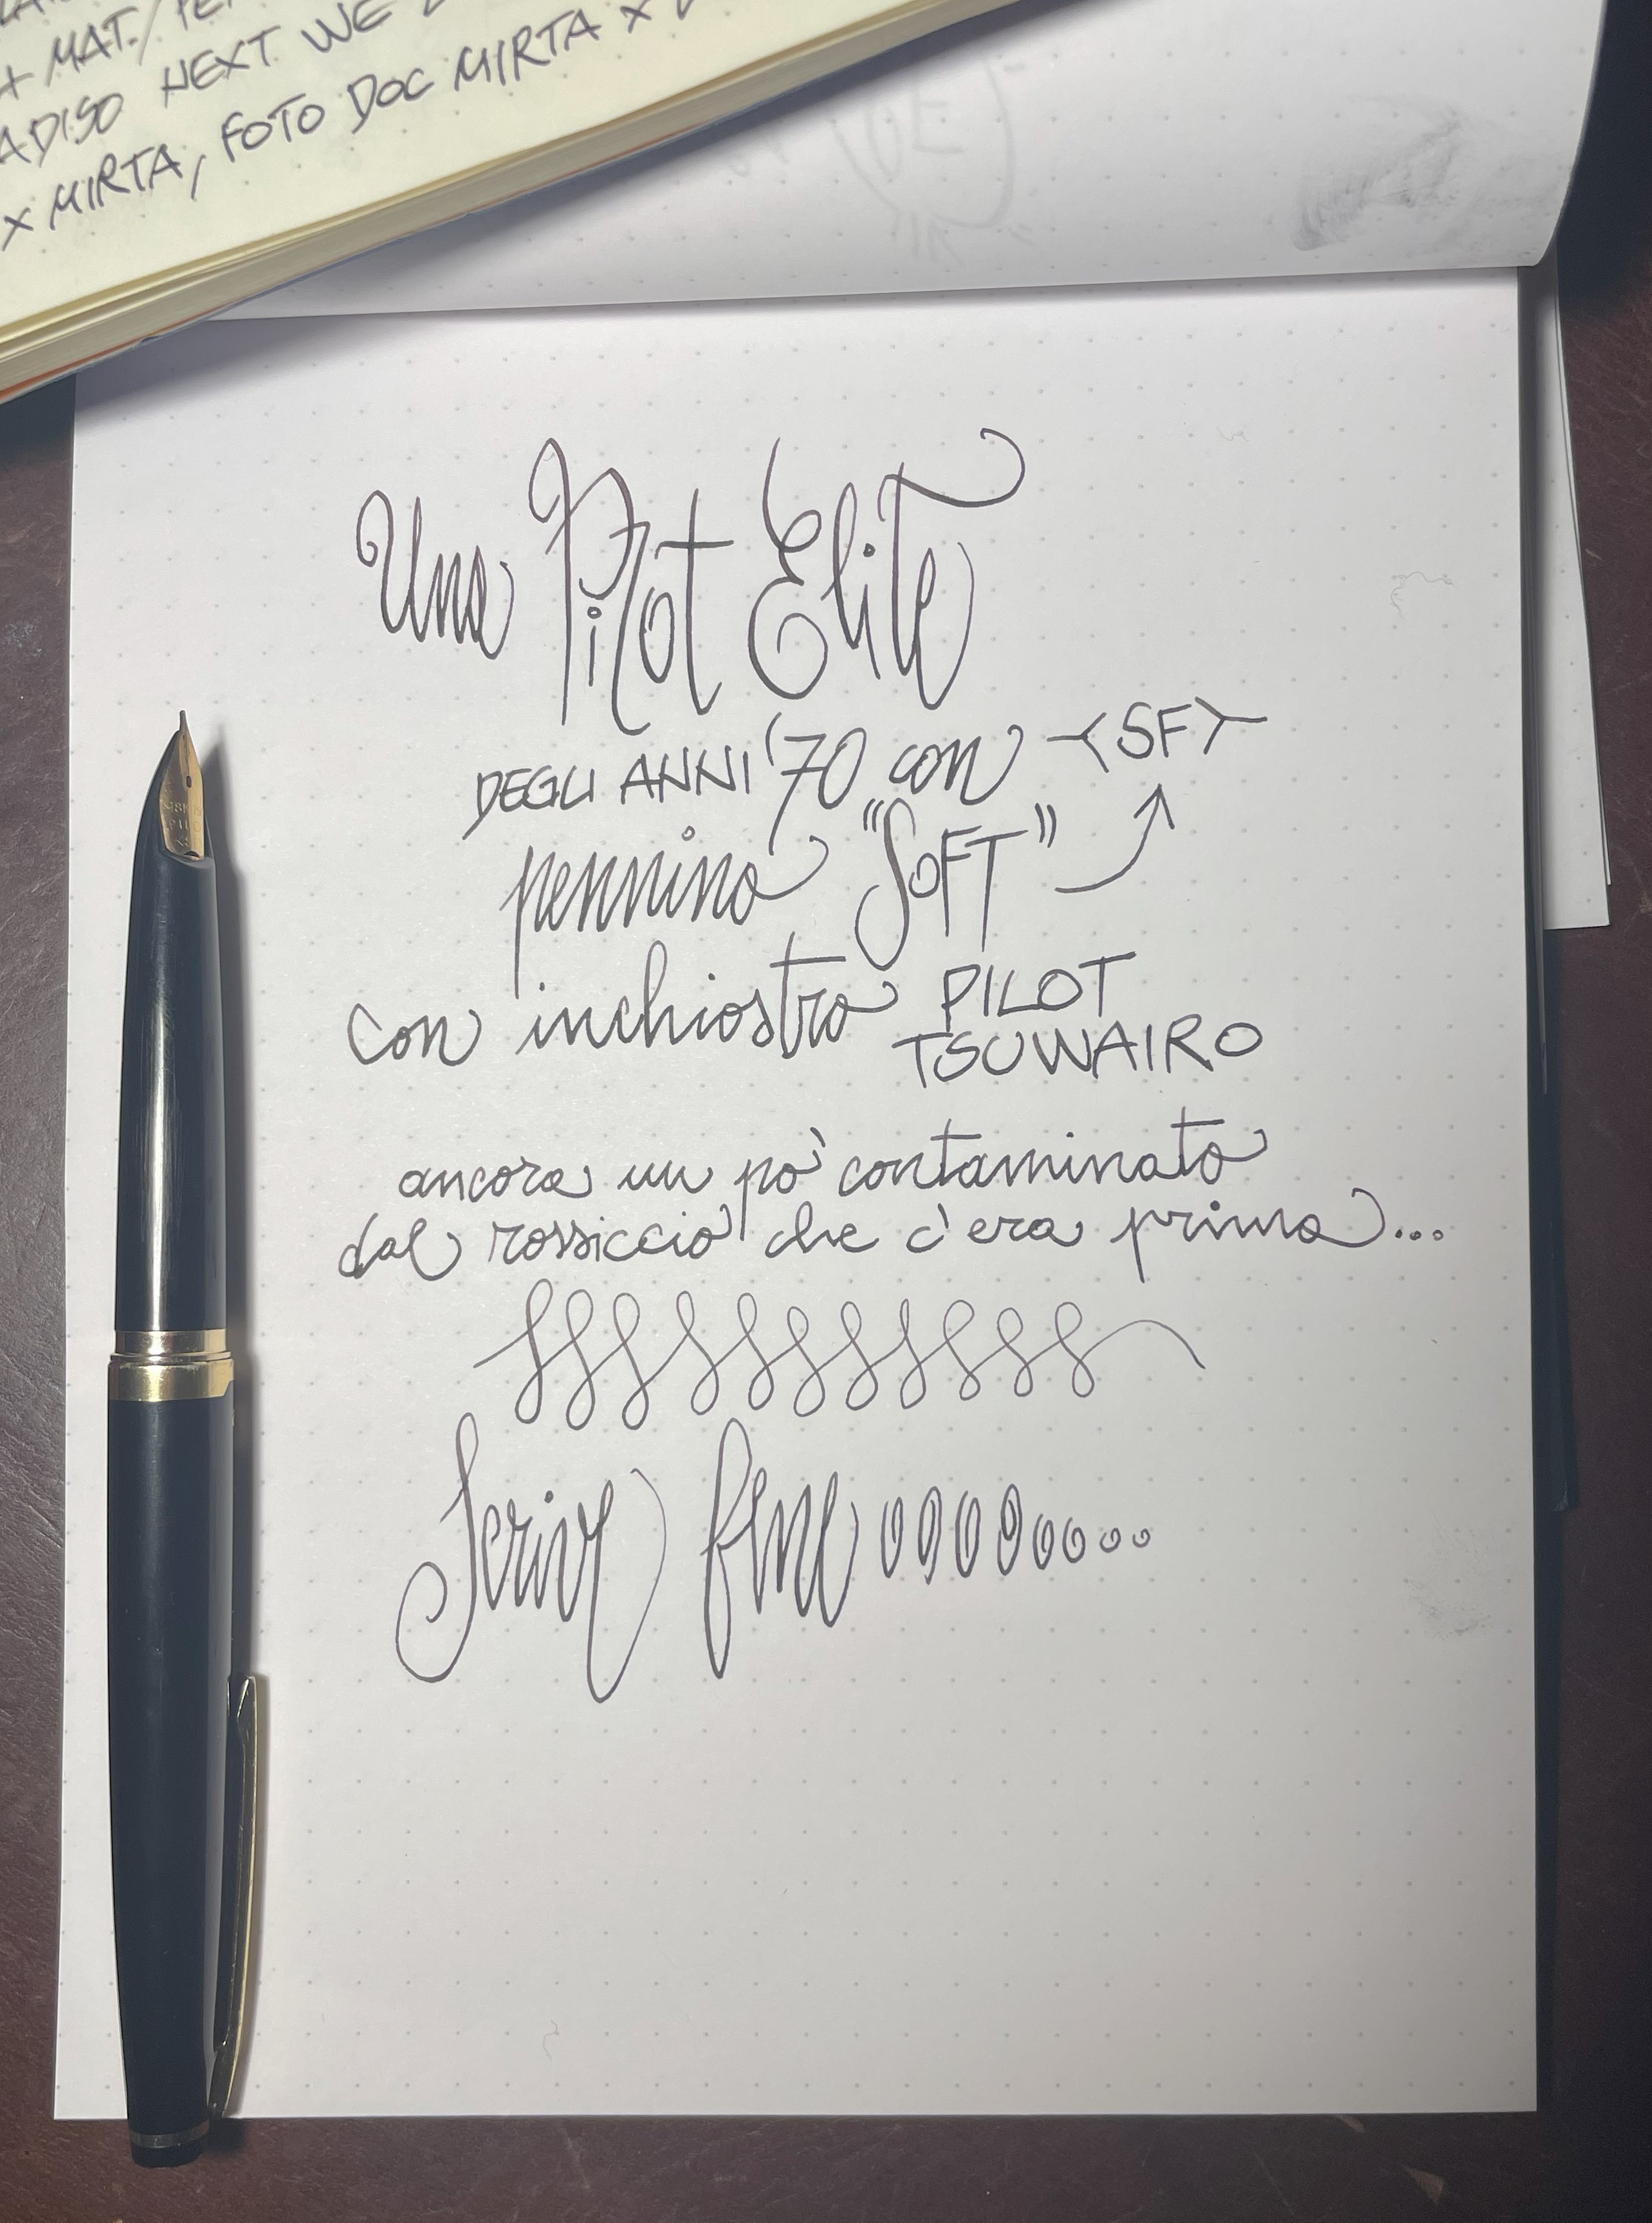 + MAT./
ADISO NEXT WE
x MIRTA, FOTO DOC MIRTA x
Una Pilot Elite
DEGLI ANNI '70 con <SF>
pennino "SOFT"
con inchiostro PILOT
TSUWAIRO
ancora un po' contaminato
dal rossiccio che c'era prima...
Scrive fine